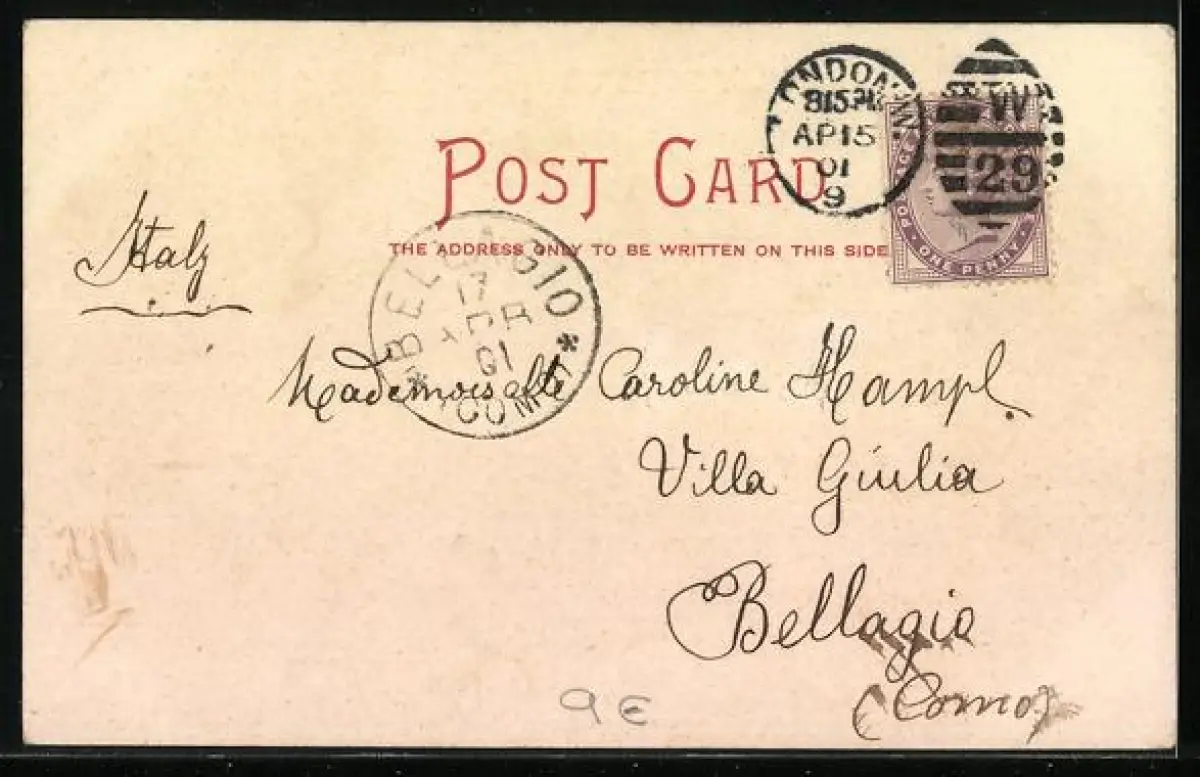 LONDON.W
815PM
AP15
01
9
W
29
POST CARD
THE ADDRESS ONLY TO BE WRITTEN ON THIS SIDE
ONE PENNY
Italy
BELLAGIO
17
01
*(COMO)*
Mademoiselle Caroline Hampl.
Villa Giulia
Bellagio
(Como)
9 €